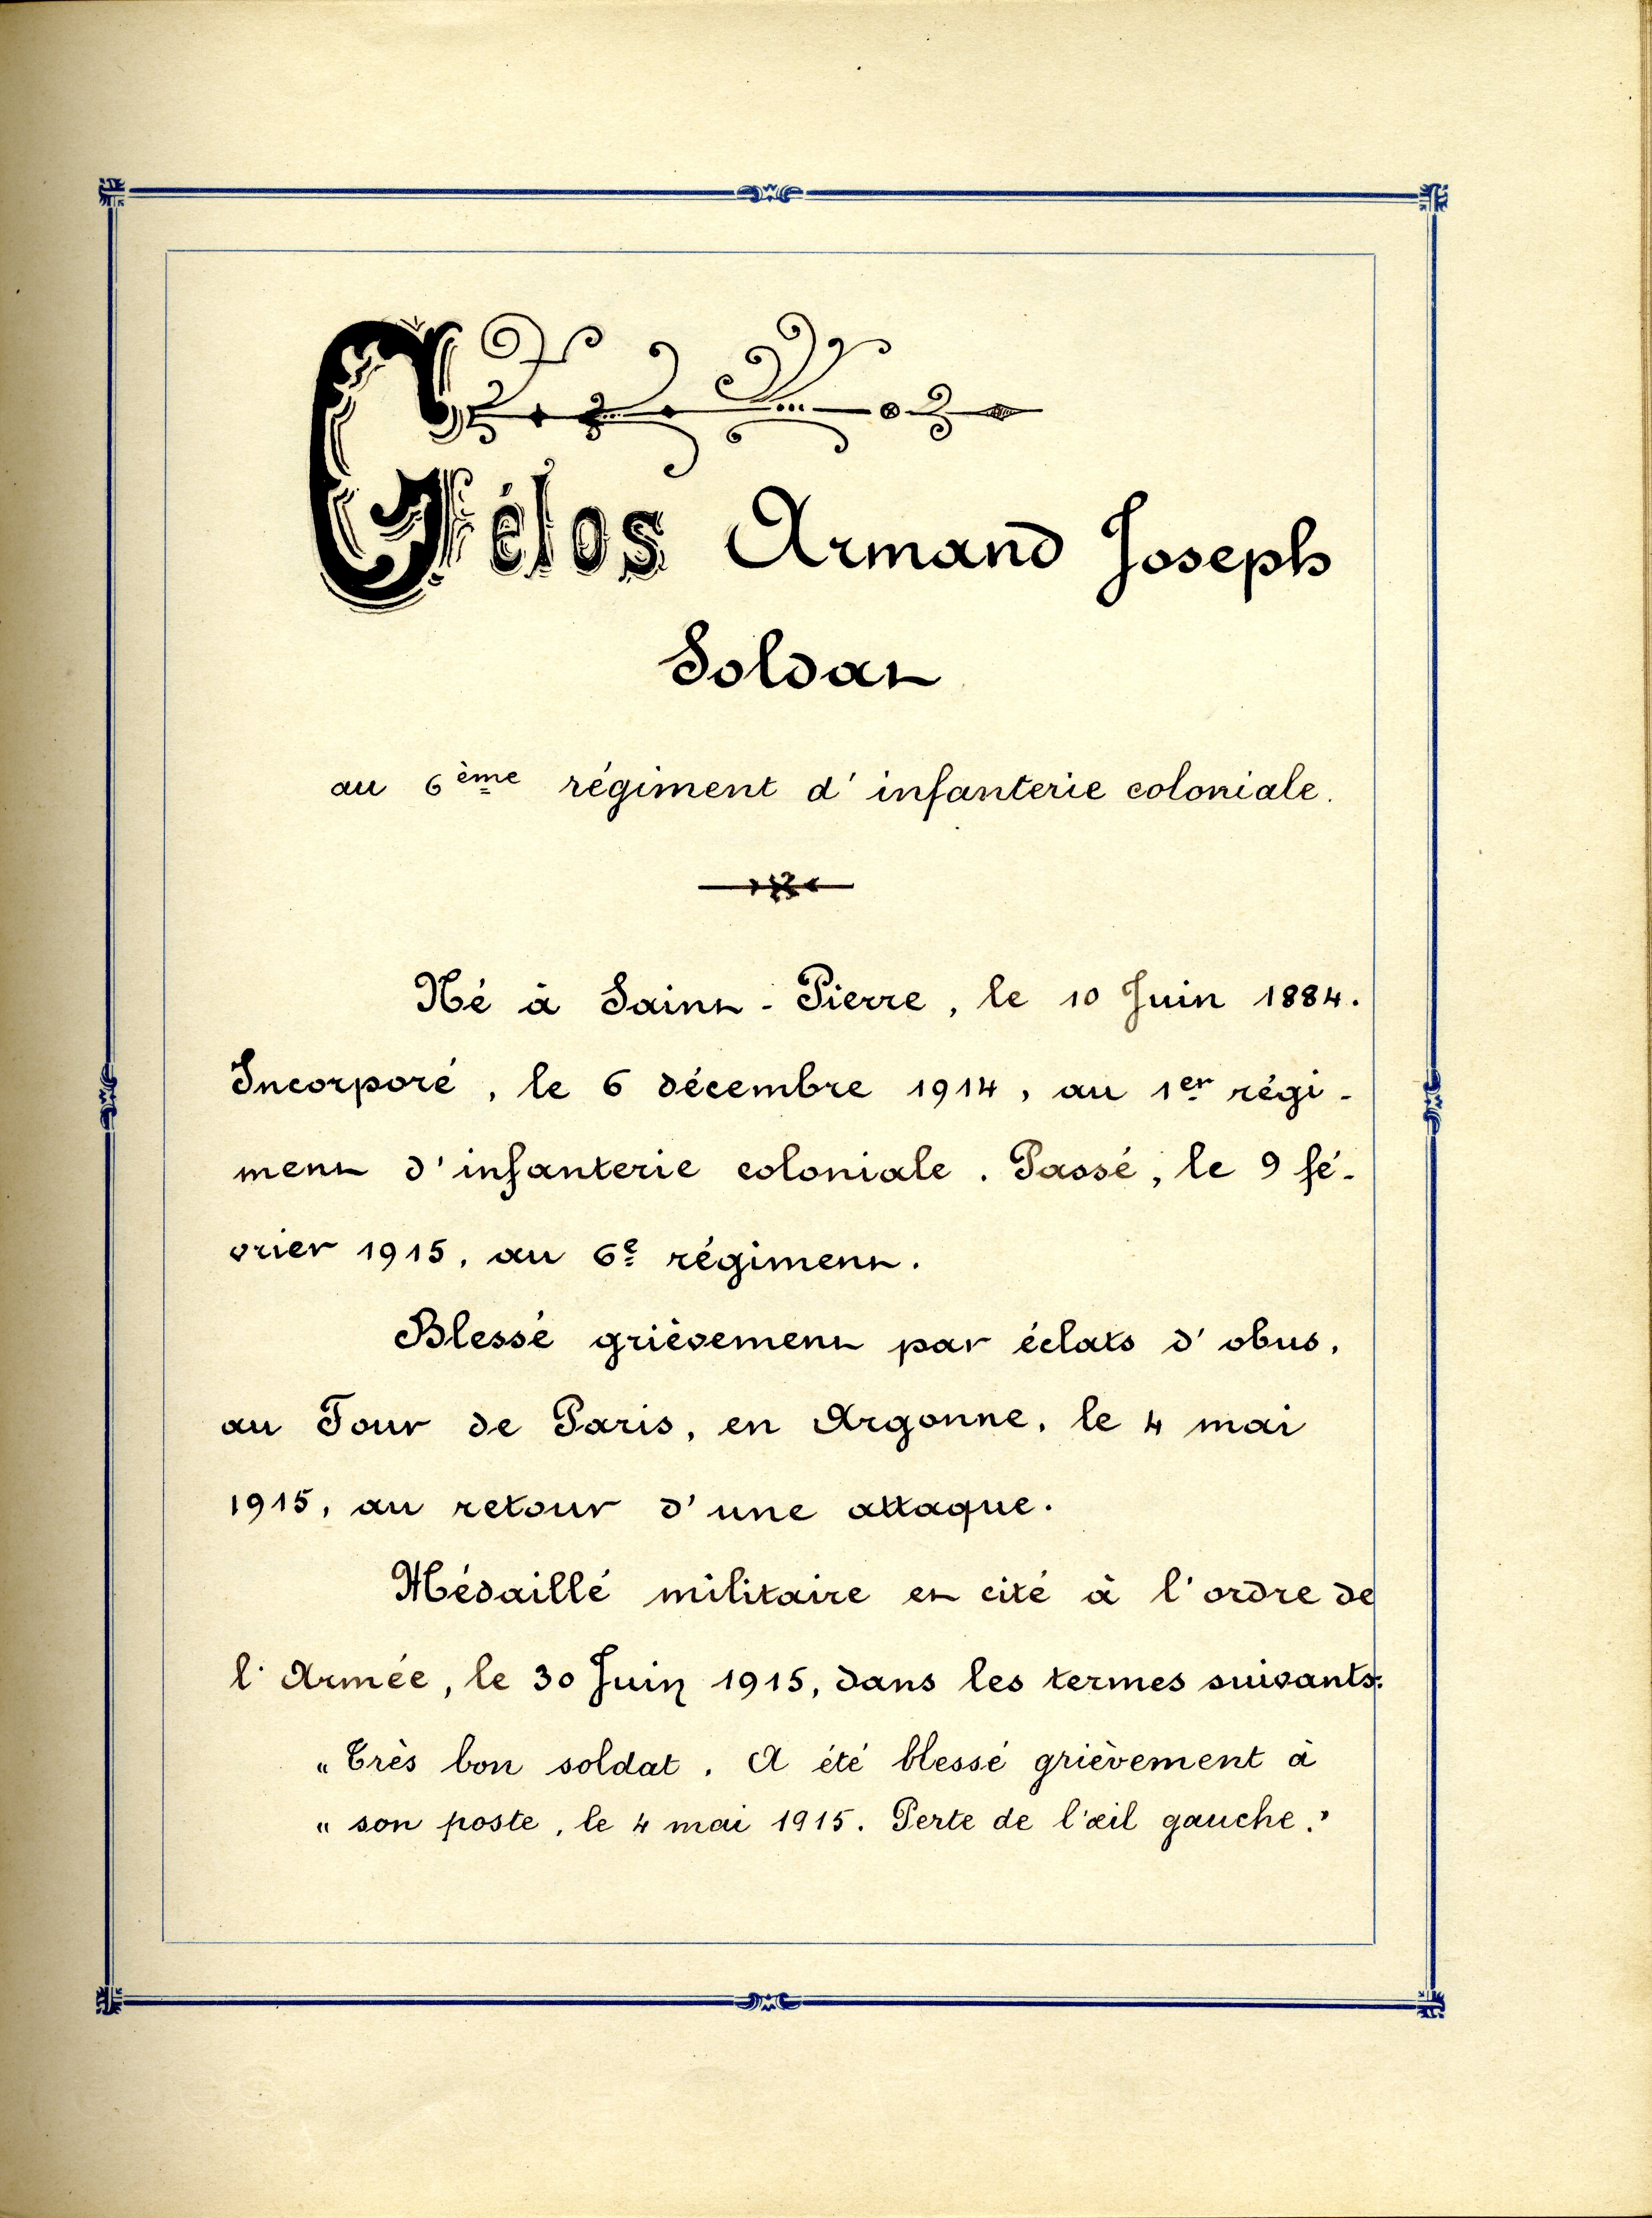 Gélos Armand Joseph
Soldat
au 6ème régiment d'infanterie coloniale.
Né à Saint-Pierre, le 10 Juin 1884.
Incorporé, le 6 décembre 1914, au 1er régi-
ment d'infanterie coloniale. Passé, le 9 fé-
vrier 1915, au 6e régiment.
Blessé grièvement par éclats d'obus,
au Four de Paris, en Argonne, le 4 mai
1915, au retour d'une attaque.
Médaillé militaire et cité à l'ordre de
l'Armée, le 30 Juin 1915, dans les termes suivants:
" Très bon soldat. A été blessé grièvement à
" son poste, le 4 mai 1915. Perte de l'œil gauche."